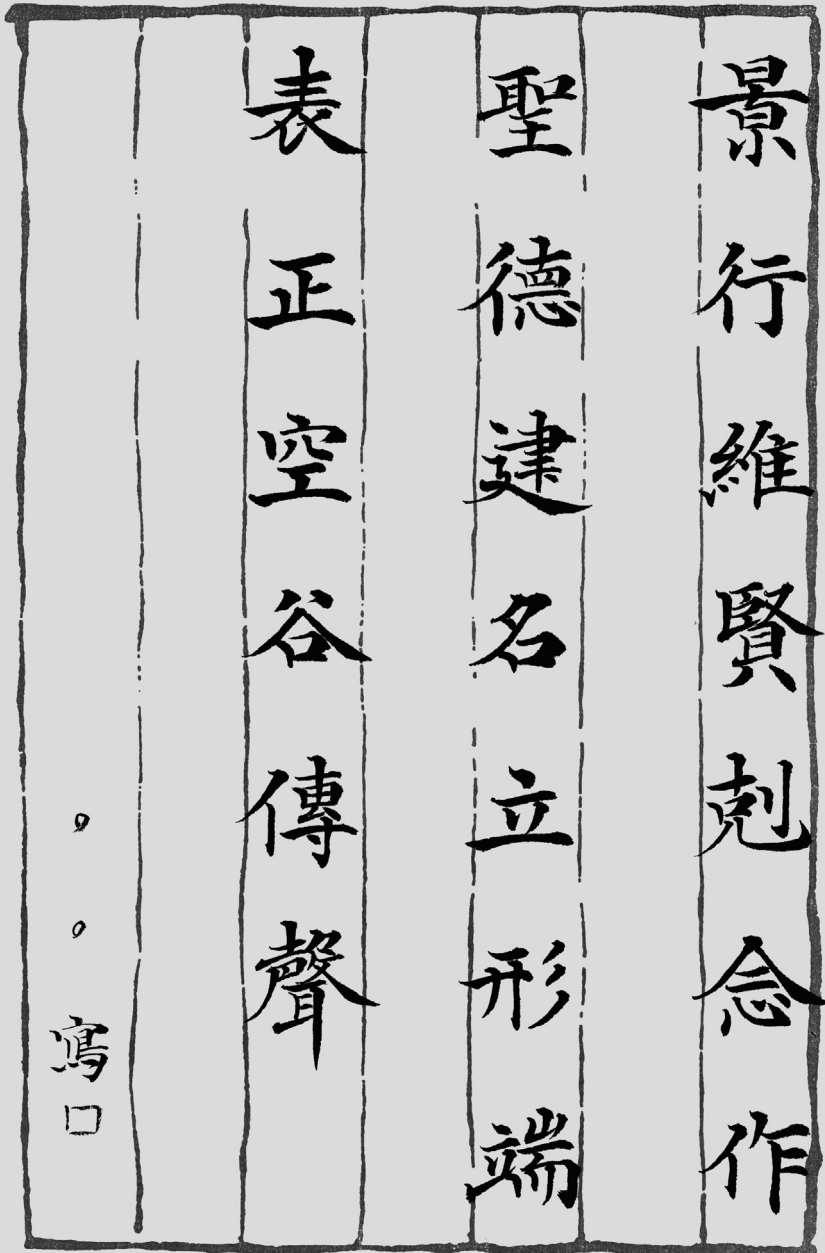 景行維賢剋念作
聖德建名立形端
表正空谷傳聲
。。寫□